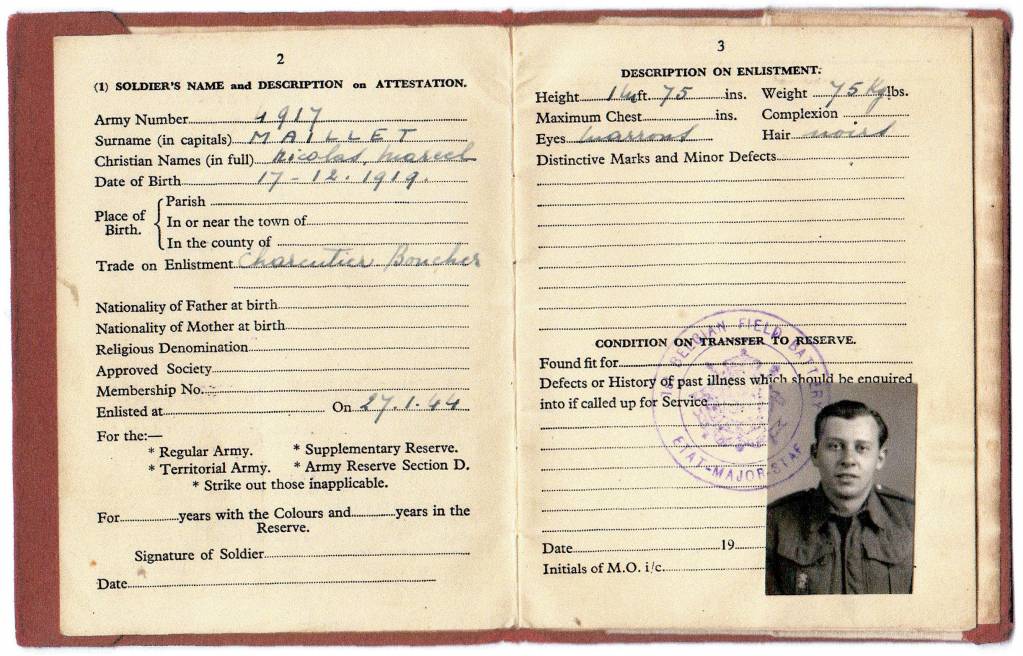 2
(1) SOLDIER'S NAME and DESCRIPTION on ATTESTATION.
Army Number 4917
Surname (in capitals) MAILLET
Christian Names (in full) Nicolas, Marcel
Date of Birth 17-12.1919.
Place of Birth.
Parish
In or near the town of
In the county of
Trade on Enlistment Charcutier Boucher
Nationality of Father at birth
Nationality of Mother at birth
Religious Denomination
Approved Society
Membership No.
Enlisted at On 27.1.44
For the:—
* Regular Army. * Supplementary Reserve.
* Territorial Army. * Army Reserve Section D.
* Strike out those inapplicable.
For years with the Colours and years in the
Reserve.
Signature of Soldier
Date
3
DESCRIPTION ON ENLISTMENT.
Height 1 ft. 75 ins. Weight 75 Kg lbs.
Maximum Chest ins. Complexion
Eyes marrons Hair noirs
Distinctive Marks and Minor Defects
CONDITION ON TRANSFER TO RESERVE.
Found fit for
Defects or History of past illness which should be enquired
into if called up for Service
BELGIAN FIELD BATTERY
ETAT-MAJOR-STAF
Date 19
Initials of M.O. i/c.